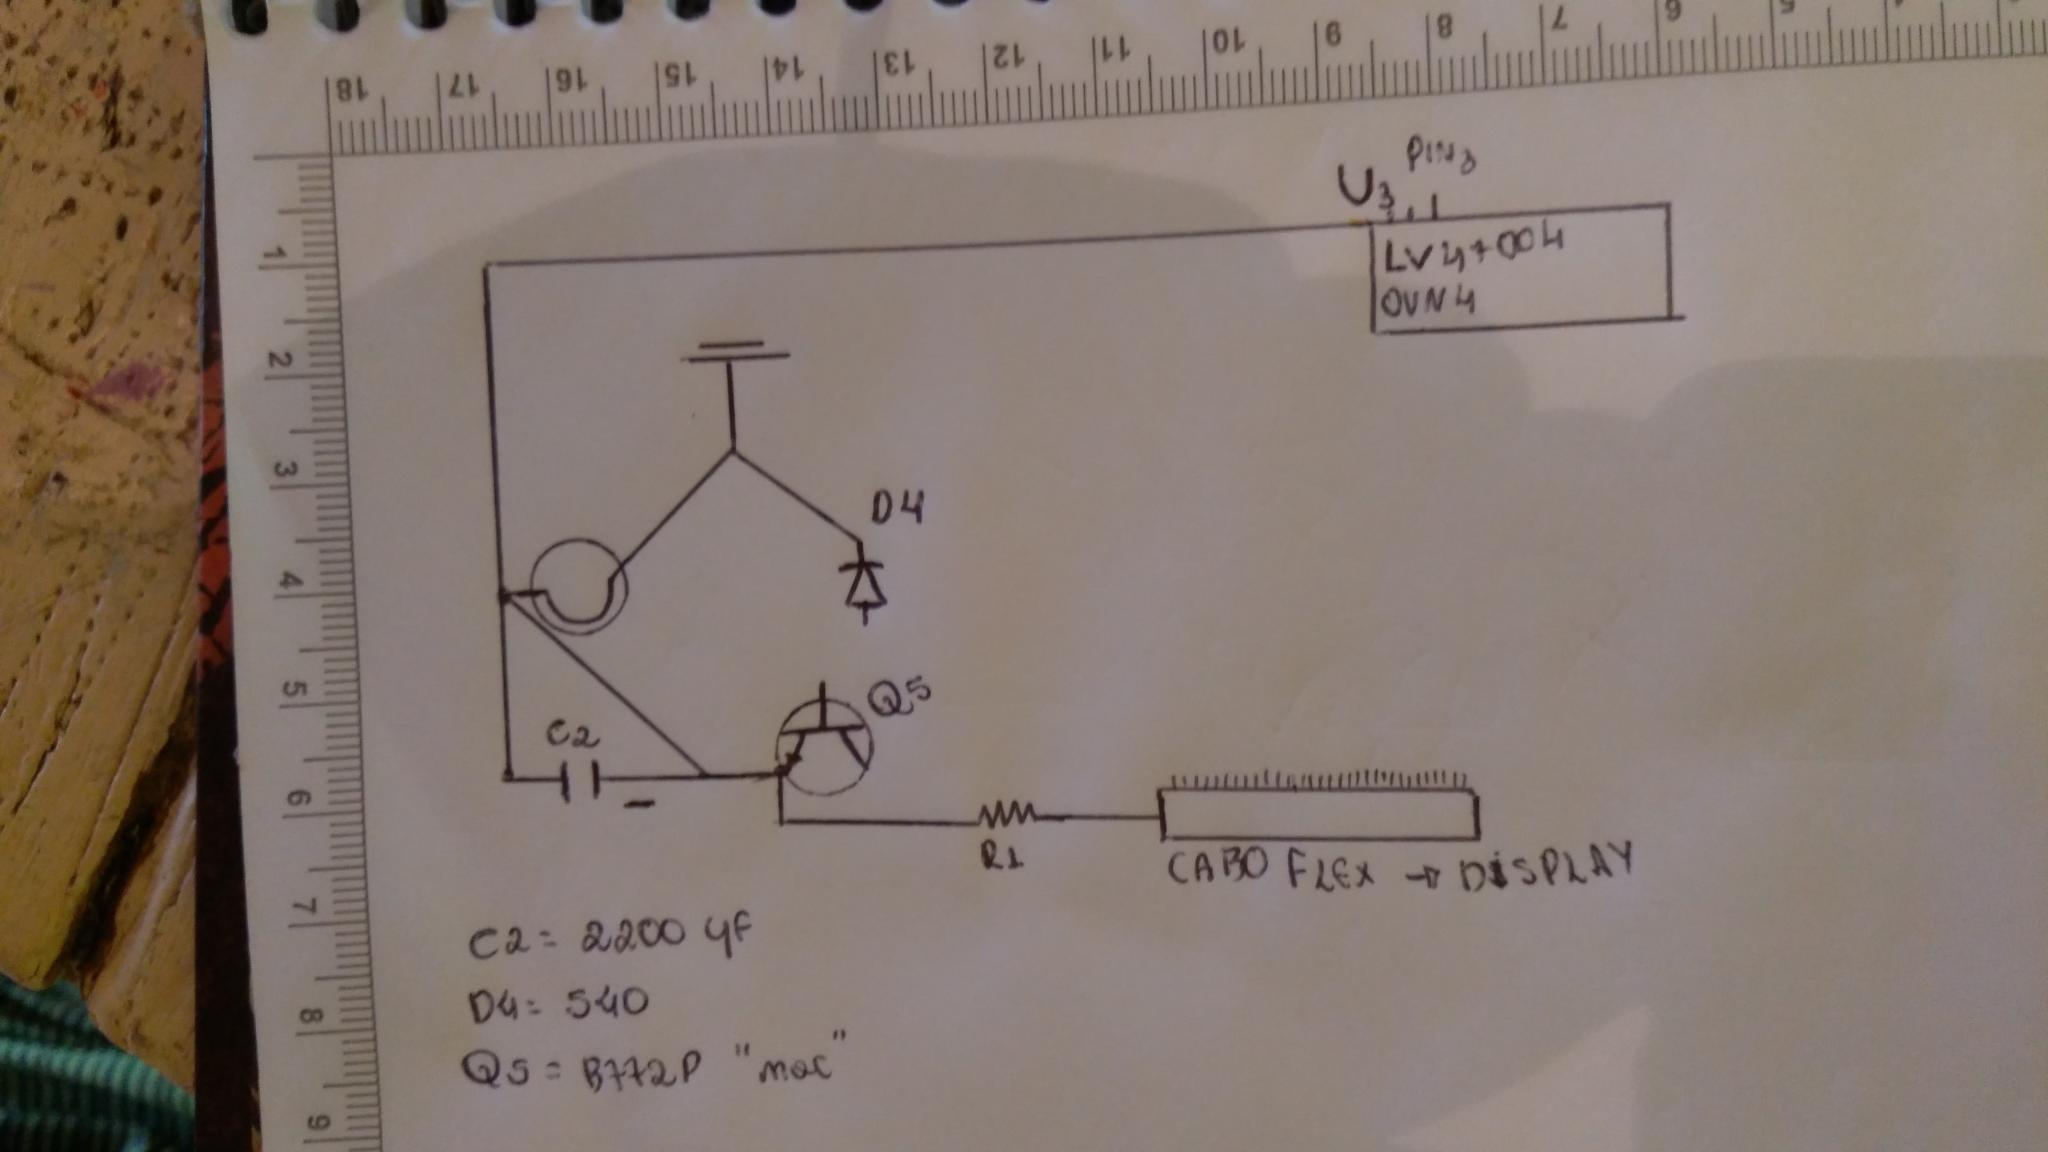 18 17 16 15 14 13 12 11 10 9 8 7 6 5
1
2
3
4
5
6
7
8
9
U3 PIN3
LV47004
OVN4
D4
Q5
C2
R1
CABO FLEX → DISPLAY
C2= 2200 µF
D4= S40
Q5= B772P "mac"